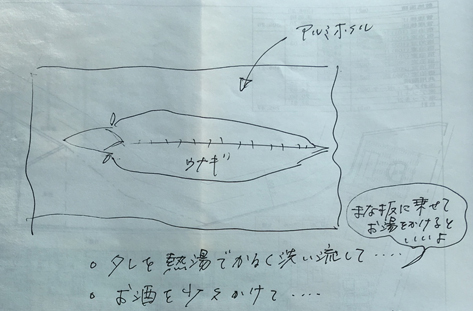 アルミホイル
ウナギ
まな板に乗せて
お湯をかけると
いいよ
○ タレを熱湯でかるく洗い流して‥‥
○ お酒を少々かけて‥‥